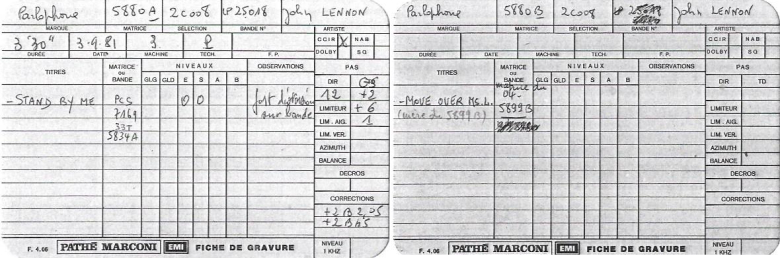 Parlophone 5880 A 2C008 LP 25018 John LENNON
MARQUE MATRICE SELECTION BANDE N° ARTISTE
3'30" 3.9.81 3 P CCIR X NAB
DOLBY SQ
DURÉE DATE MACHINE TECH. F. P. PAS
TITRES MATRICE ou BANDE NIVEAUX OBSERVATIONS
GLG GLD E S A B
DIR
- STAND BY ME PCS 0 0 fort distorsion 12 +2
7169 sur bande LIMITEUR +6
33T LIM. AIG. 1
5834A LIM. VER.
AZIMUTH
BALANCE
DECROS
CORRECTIONS
+2 B 2,5
+2 B
F. 4.06 PATHÉ MARCONI EMI FICHE DE GRAVURE NIVEAU 1 KHZ
Parlophone 5880 B 2C008 John LENNON
MARQUE MATRICE SELECTION BANDE N° ARTISTE
CCIR NAB
DOLBY SQ
DURÉE DATE MACHINE TECH. F. P. PAS
TITRES MATRICE ou BANDE NIVEAUX OBSERVATIONS
GLG GLD E S A B
DIR TD
matrice du
04-
- MOVE OVER MS. L. 5899 B LIMITEUR
(mère du 5899 B) LIM. AIG.
LIM. VER.
AZIMUTH
BALANCE
DECROS
CORRECTIONS
F. 4.06 PATHÉ MARCONI EMI FICHE DE GRAVURE NIVEAU 1 KHZ